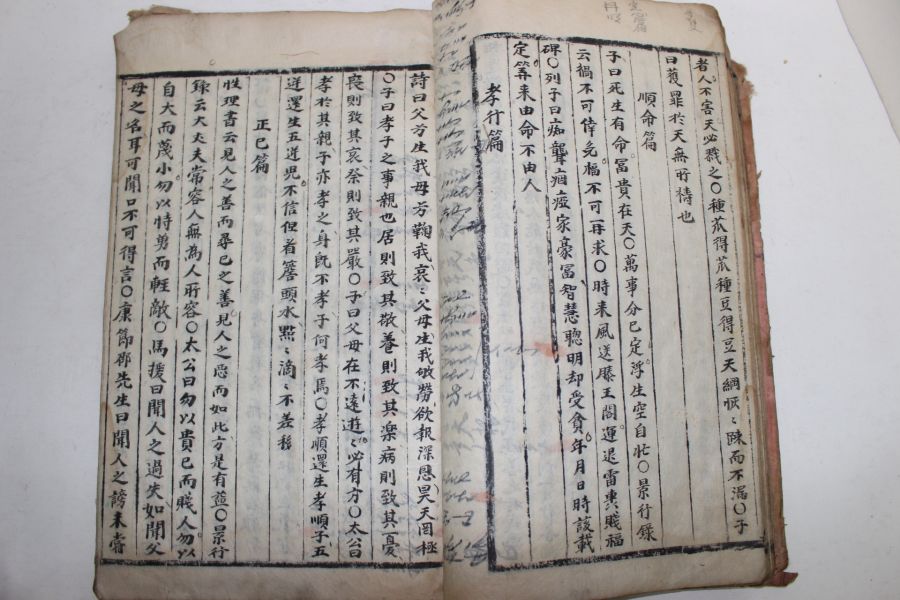 者人不害天必戮之○種苽得苽種豆得豆天網恢〻踈而不漏○子
曰獲罪於天無所禱也
順命篇
子曰死生有命富貴在天○萬事分已定浮生空自忙○景行錄
云禍不可倖免福不可再求○時来風送滕王閣運退雷轟賤福
碑○列子曰痴聾痼瘂家豪冨智慧聰明却受貧年月日時該載
定筭来由命不由人
孝行篇
詩曰父兮生我母兮鞠我哀〻父母生我劬勞欲報深恩昊天罔極
○子曰孝子之事親也居則致其敬養則致其楽病則致其憂
喪則致其哀祭則致其嚴○子曰父母在不遠遊〻必有方○太公曰
孝於其親子亦孝之身旣不孝子何孝焉○孝順還生孝順子五
逆還生五逆児不信但看簷頭水㸃〻滴〻不差移
正己篇
性理書云見人之善而尋己之善見人之惡而如此方是有益○景行
錄云大丈夫常容人無為人所容○太公曰勿以貴己而賤人勿以
自大而蔑小勿以恃勇而軽敵○馬援曰聞人之過失如聞父
母之名耳可聞口不可得言○康節邵先生曰聞人之謗未甞